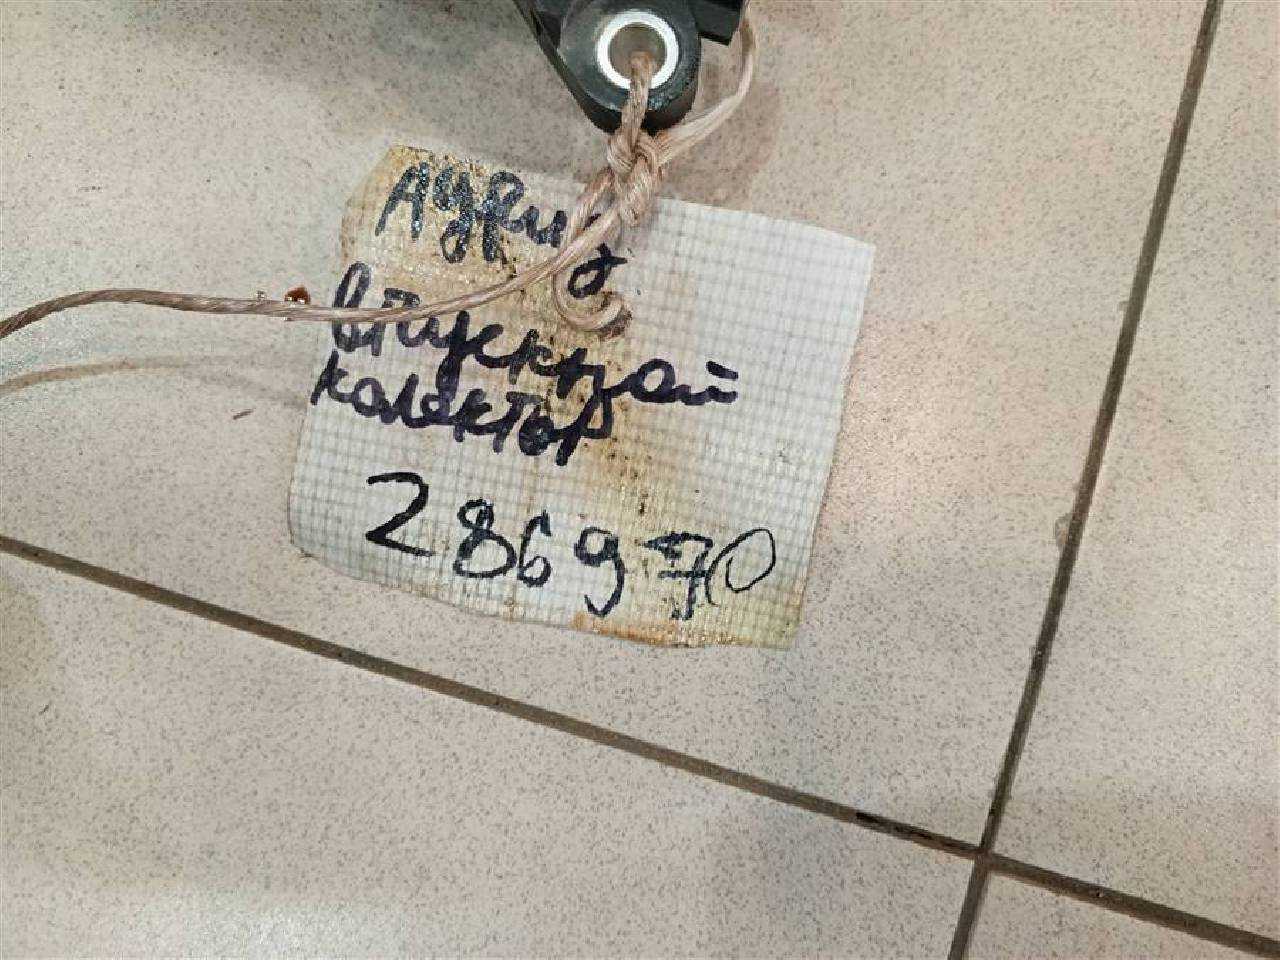 Аурис
впускной
колектор
286970